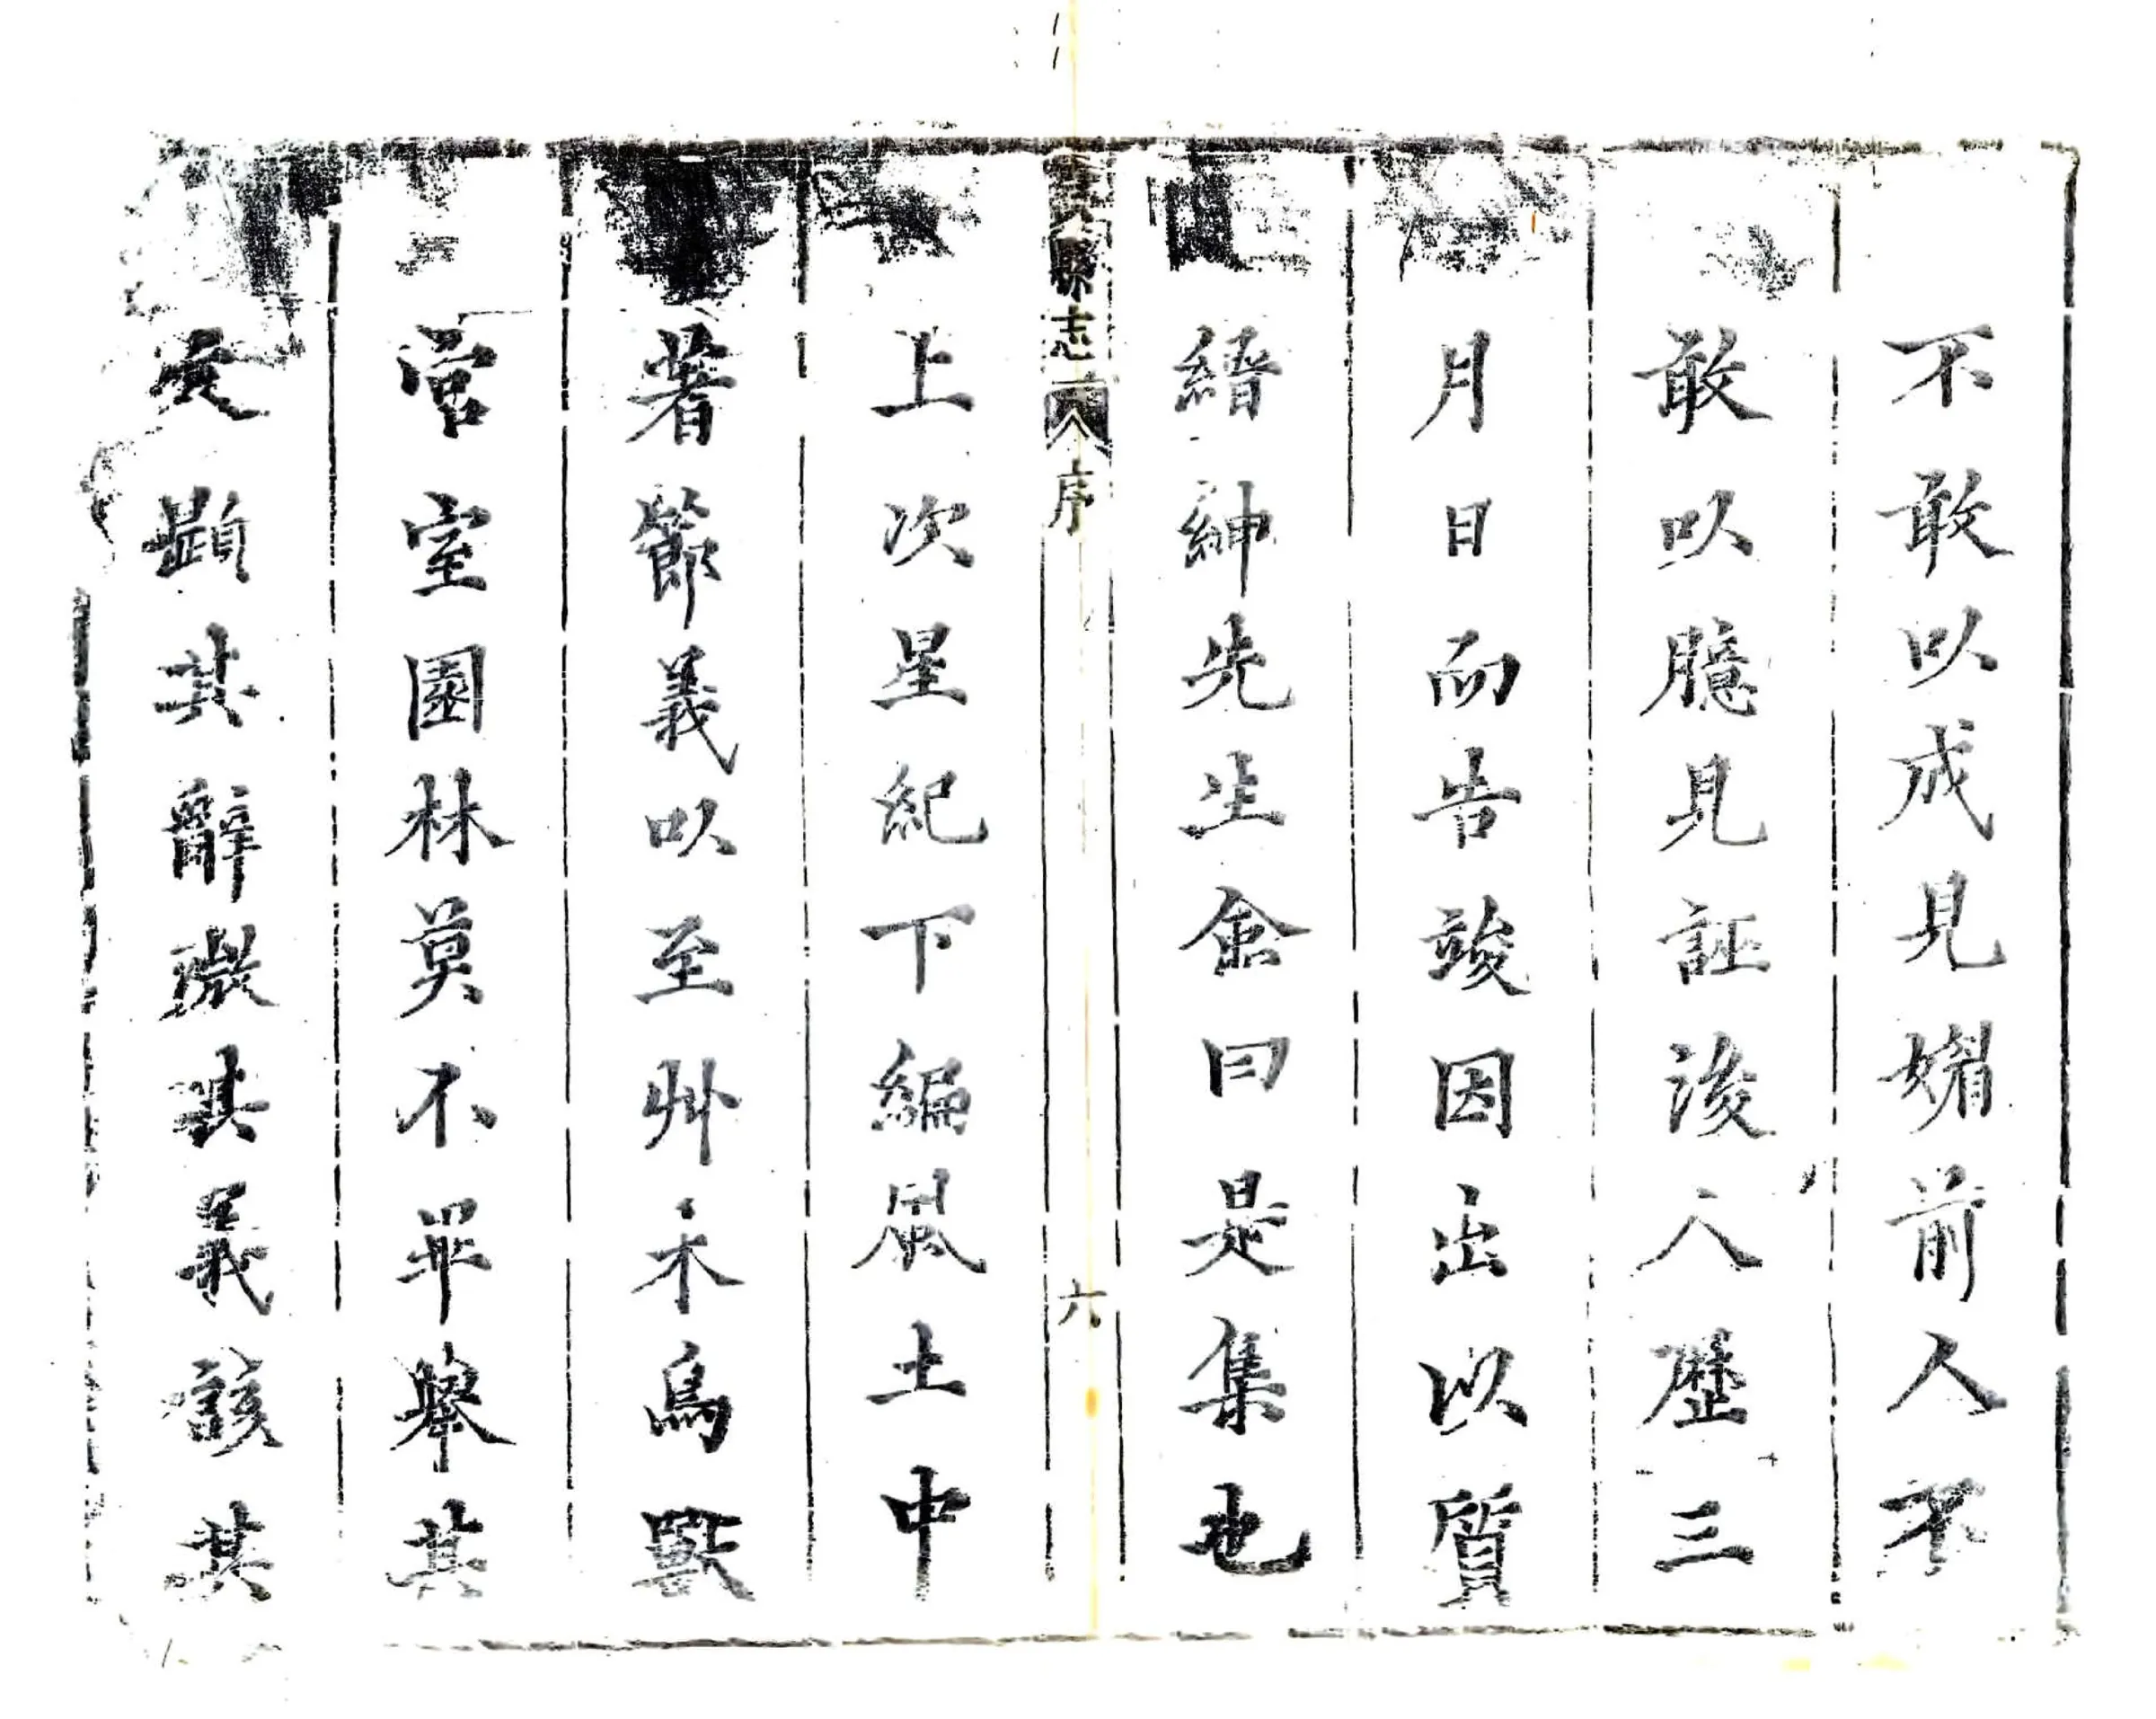 不敢以成見媚前人不
敢以臆見誣後人歷三
月日而告竣因出以質
縉紳先生僉曰是集也
縣志 序 六
上次星紀下編風土中
著節義以至艸木鳥獸
宮室園林莫不畢舉其
文顯其辭微其義該其